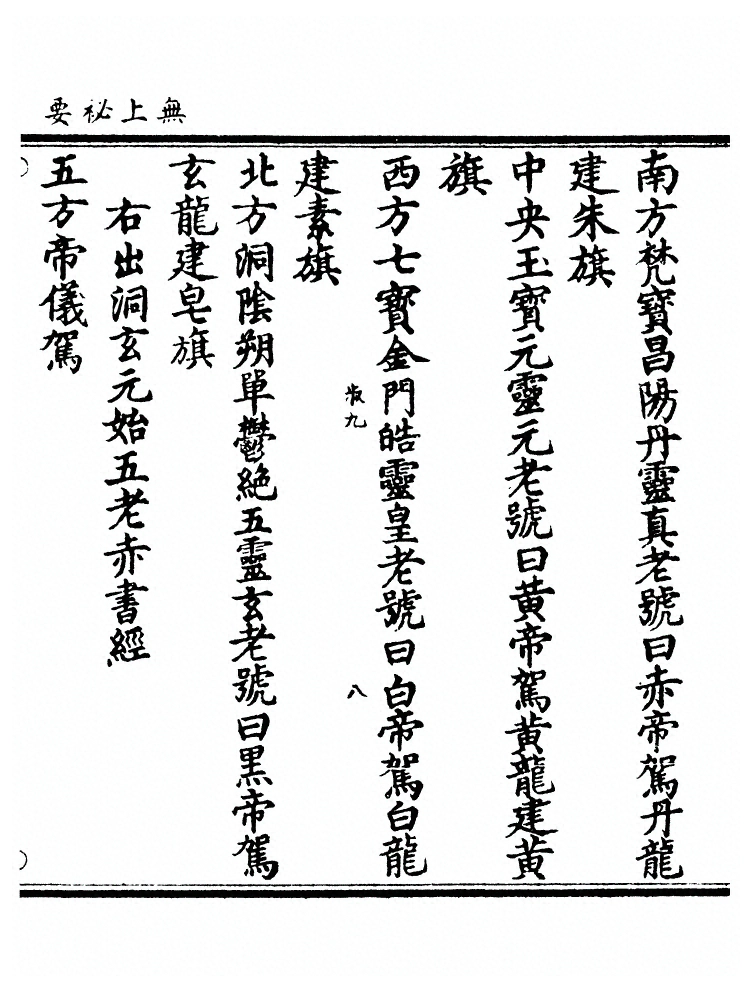 無上祕要
南方梵寶昌陽丹靈真老號曰赤帝駕丹龍
建朱旗
中央玉寶元靈元老號曰黃帝駕黃龍建黃
旗
西方七寶金門皓靈皇老號曰白帝駕白龍
建素旗
北方洞陰朔單鬱絕五靈玄老號曰黑帝駕
玄龍建皂旗
右出洞玄元始五老赤書經
五方帝儀駕
九
八